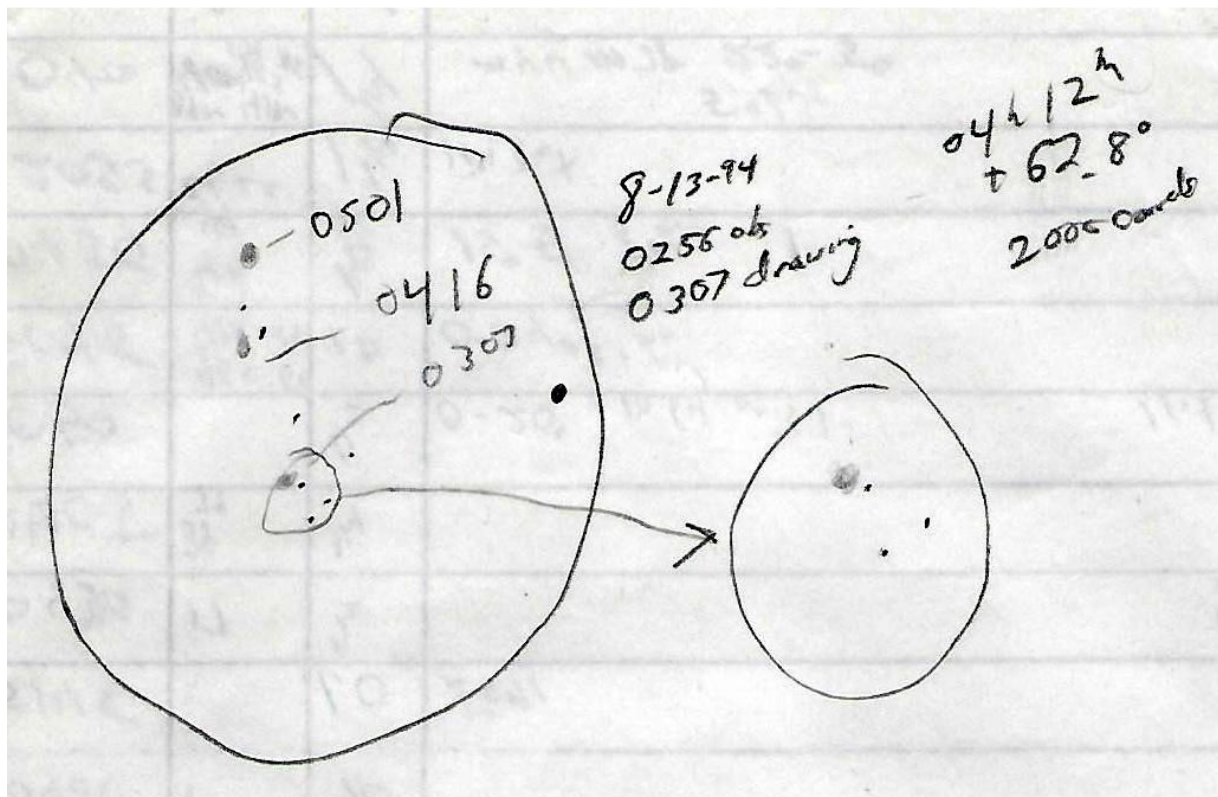 0501
0416
0307
8-13-94
0256 obs
0307 drawing
04h 12m
+ 62.8°
2000 coords